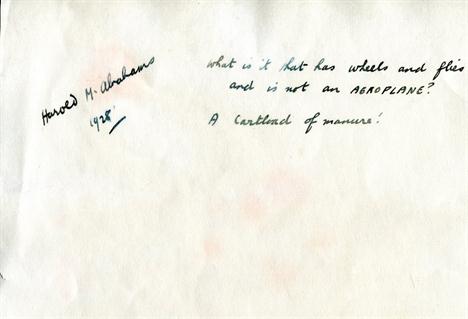 Harold M. Abrahams
1928
What is it that has wheels and flies
and is not an AEROPLANE?
A Cartload of manure!